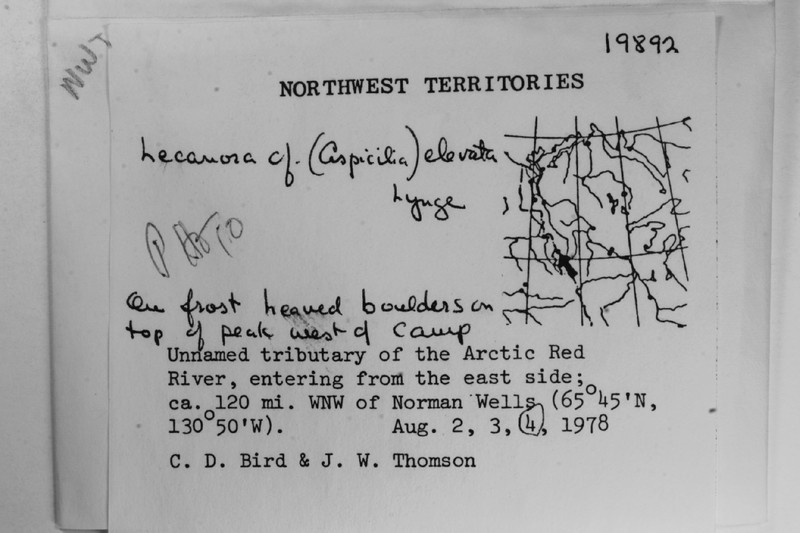 19892
NWT
NORTHWEST TERRITORIES
Lecanora cf. (Aspicilia) elevata
Lynge
PHOTO
On frost heaved boulders on
top of peak west of Camp
Unnamed tributary of the Arctic Red
River, entering from the east side;
ca. 120 mi. WNW of Norman Wells (65°45'N,
130°50'W). Aug. 2, 3, 4, 1978
C. D. Bird & J. W. Thomson